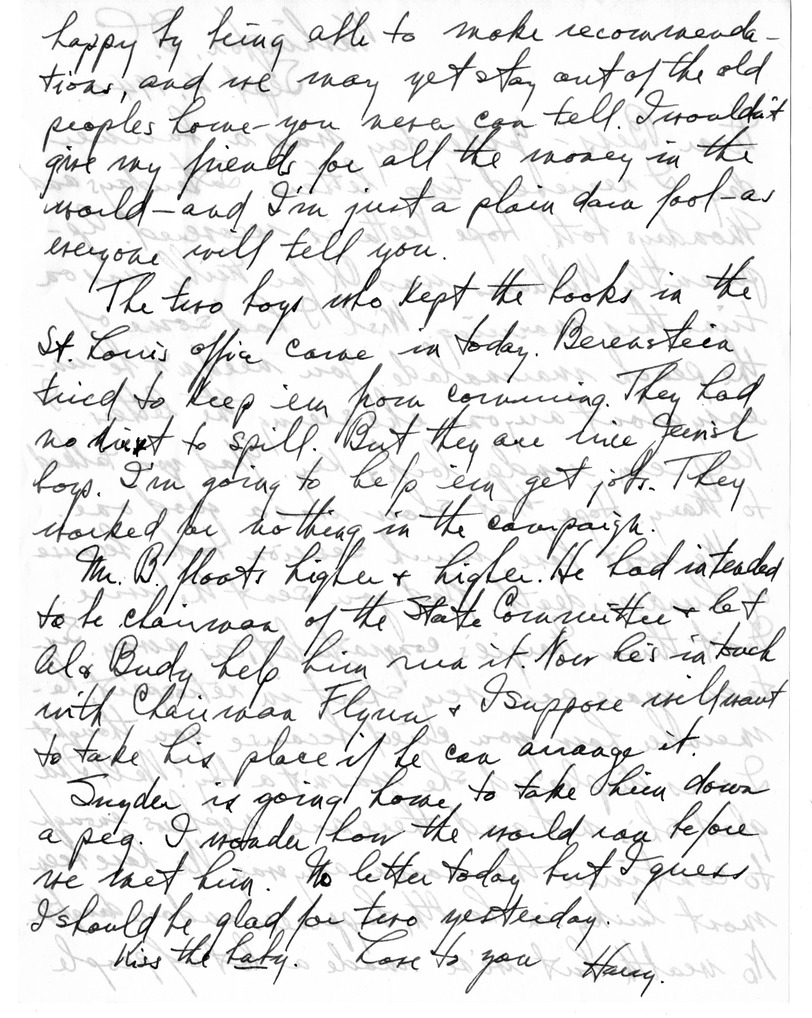 happy by being able to make recommenda-
tions, and we may yet stay out of the old
peoples home—you never can tell. I wouldn't
give my friends for all the money in the
world—and I'm just a plain darn fool—as
everyone will tell you.
The two boys who kept the books in the
St. Louis office came in today. Berenstein
tried to keep 'em from comming. They had
no dirt to spill. But they are nice Jewish
boys. I'm going to help 'em get jobs. They
worked for nothing in the campaign.
Mr. B. floats higher & higher. He had intended
to be chairman of the State Committee & let
Al & Budy help him run it. Now he's in touch
with Chairman Flynn & I suppose will want
to take his place if he can arrange it.
Snyder is going home to take him down
a peg. I wonder how the world ran before
we met him. No letter today but I guess
I should be glad for two yesterday.
Kiss the baby. Love to you Harry.